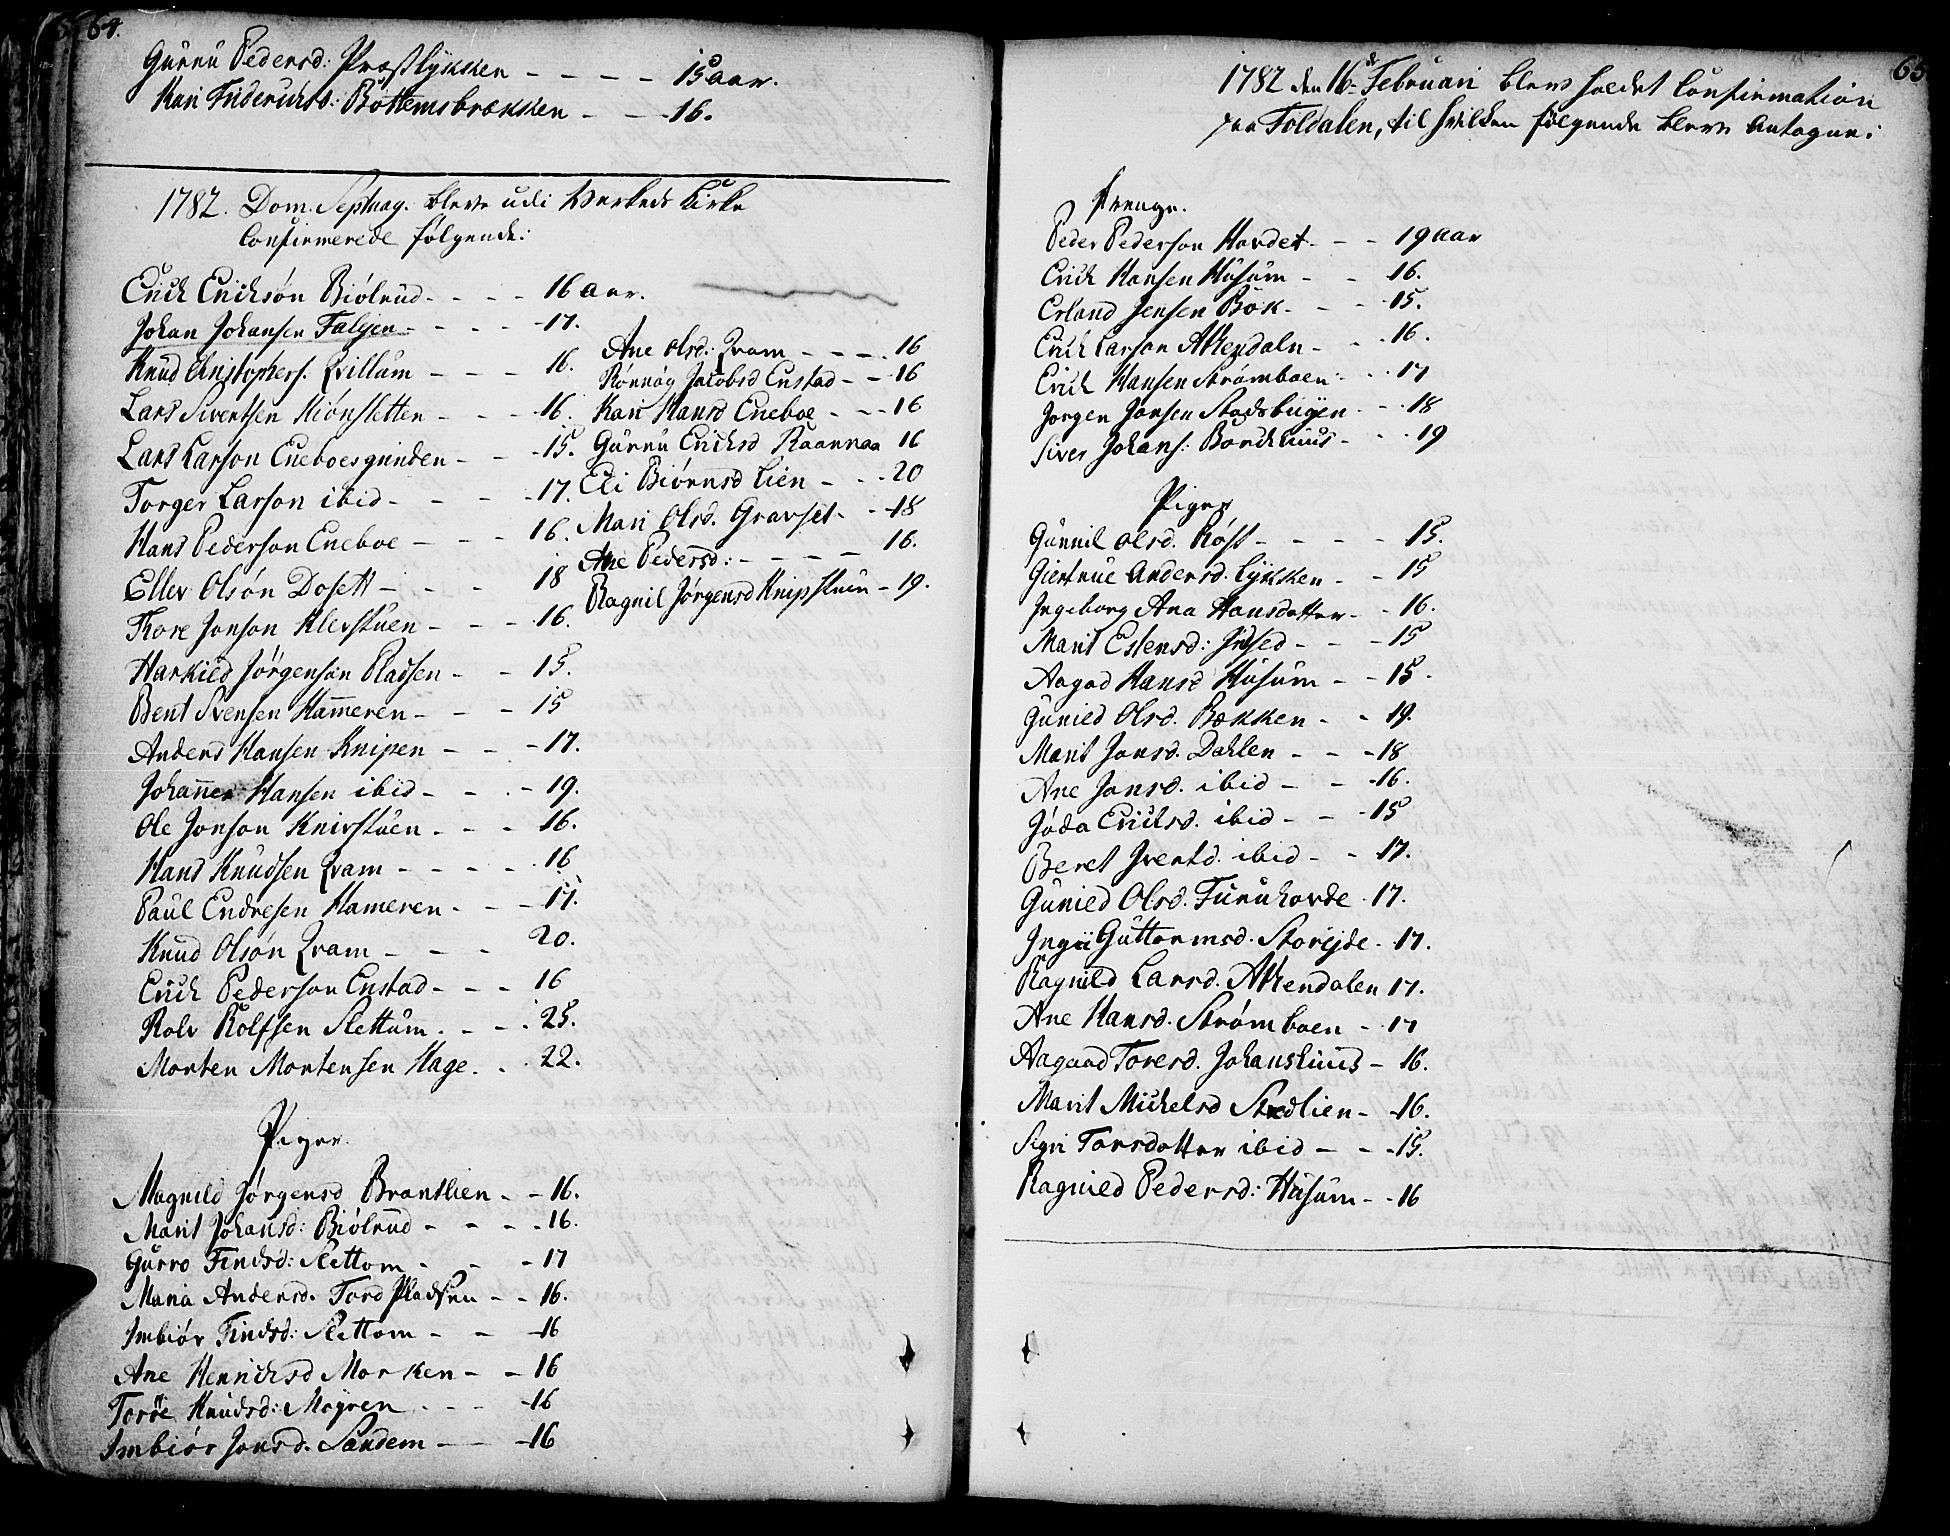 64.
Gurru Pedersd: Præstlykken - - - - 15 aar.
Kari Friderichsd: Bottemsbrækken - - - 16.
1782. Dom. Septuag. bleve udi Werkeds Kirke
Confirmerede følgende:
Erich Erichsøn Biólrud - - - - 16 aar.
Johan Johansen Falgen - - - - 17.
Knud Christophers. Qvillum - - - 16.
Lars Siventsen Kiónsletten - - - 16.
Lars Larson Eneboesgrinden - - - 15.
Torger Larson ibid - - - - 17.
Hans Pederson Eneboe - - - 16.
Ellev Olsøn Dosett - - - 18
Thore Jonson Klevstuen - - - 16.
Harkild Jørgenson Pladsen - - 15.
Bent Svensen Hameren - - - 15
Anders Hansen Knipen - - - 17.
Johannes Hansen ibid - - - 19.
Ole Jonson Knivstuen - - - 16.
Hans Knudsen Qvam - - - - 16
Paul Endresen Hameren - - - 17.
Knud Olsøn Qvam - - - 20.
Erich Pederson Enstad - - - 16
Rolv Rolfsen Slettum - - - 25.
Morten Mortensen Hage - - 22.
Piger.
Magnild Jørgensd Brantlien - - 16.
Marit Johansd: Biólrud - - - - 16.
Gurro Findsd: Slettom - - - 17
Maria Andersd. Tord Pladsen - - 16.
Imbiór Findsd: Slettom - - - 16
Ane Henrichsd Morken - - 16
Torøe Knudsd: Moÿren - - - 16
Imbiór Jonsd. Sandem - - - 16
Ane Olsd: Qvam - - - - 16
Rónnóg Jacobsd Enstad - - 16
Kari Hansd Eneboe - - - 16
Gurru Erichsd Raannaa 16
Eli Biórnsd Lien - - - 20
Mari Olsd. Gravset - - 18
Ane Pedersd: - - - - 16.
Ragnil Jørgensd Knipstuen - 19.
65
1782 den 16de Februari blev holdet Confirmation
paa Foldalen, til hvilken følgende bleve Antagne:
Drenge.
Peder Pederson Hovdet - - - 19 aar
Erich Hansen Husum - - - 16.
Erland Jensen Bok - - - 15.
Erich Larson Atnedaln - - - 16.
Erich Hansen Strømboen - - - 17
Jorgen Jonsen Stadsbuÿen - - - 18
Siver Johans: Bordhuus - - - 19
Piger
Gunnil Olsd. Róst - - - - 15.
Giertrue Andersd. Lÿkken - - 15
Ingeborg Ana Hansdotter - - 16.
Marit Estensd: Indsed - - - 15
Aagod Hansd Husum - - 15.
Gunild Olsd. Bækken - - 19.
Marit Jonsd. Dahlen - - - 18
Ane Jonsd. ibid - - - 16.
Jóda Erichsd. ibid - - - 15
Beret Iverdd. ibid - - 17.
Gunild Olsd. Furuhovde - 17.
Ingri Guttormsd. Storejde - 17.
Ragnild Larsd. Atnendalen 17.
Ane Hansd. Strømboen - - 17
Aagaad Toresd. Johanshuus - 16.
Marit Michelsd Stedlien - - 16.
Sigri Torsdotter ibid - - - 15.
Ragnild Pedersd: Husum - - 16